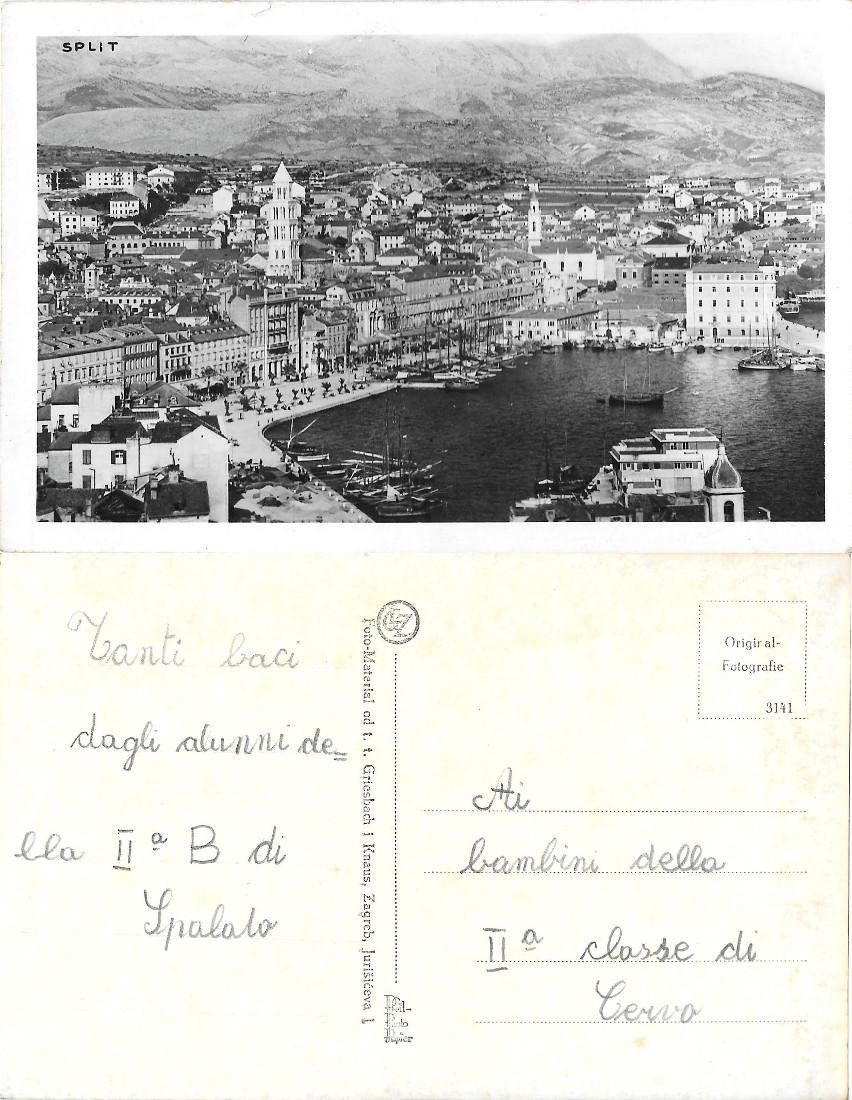 SPLIT
Tanti baci
dagli alunni de=
lla IIª B di
Spalato
Foto-Material od t. t. Griesbach i Knaus, Zagreb, Jurišićeva 1
Original-
Fotografie
3141
Ai
bambini della
IIª classe di
Cervo